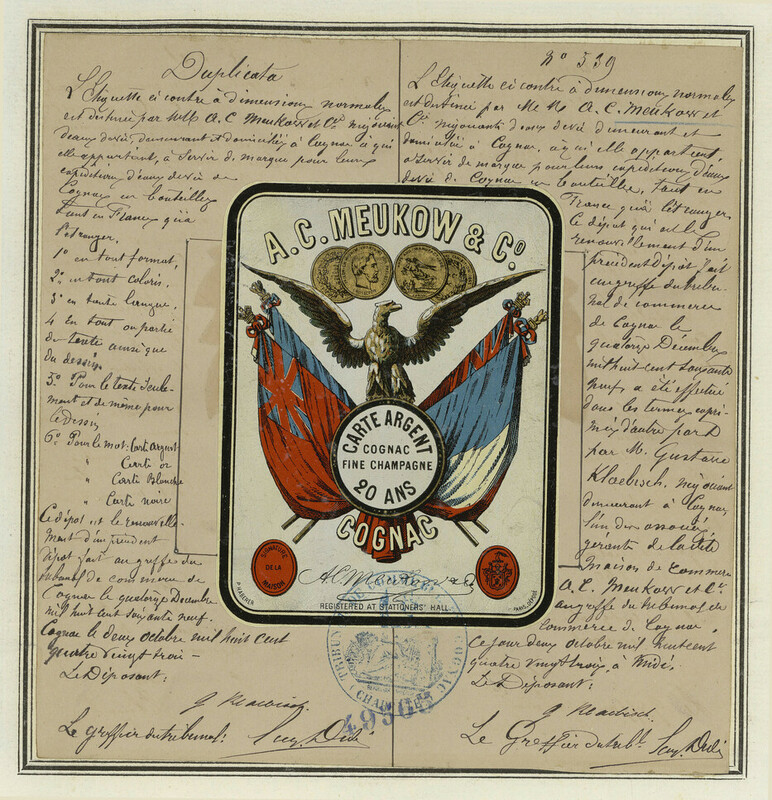 Duplicata
L'Etiquette ci contre à dimensions normales
est destinée par MM A. C Meukow et Cie négociants
d'eaux devie, demeurant et domiciliés à Cognac a qui
elle appartient, à Servir de marque pour leurs
expéditions d'eaux devie de
Cognac en bouteilles
tant en France qu'à
l'étranger.
1o en tout format,
2o en tout coloris.
3o en toute langue.
4 En tout ou partie
du texte ainsi que
du dessin
5o Pour le texte seule-
ment et de même pour
le dessin
6o Pour le mot: Carte Argent
" Carte or
" Carte Blanche
" Carte noire
Ce dépot est le renouvelle-
ment d'un précédent
dépot fait au greffe du
tribunal de commerce de
Cognac le quatorze Décembre
mil huit cent soixante neuf.
Cognac le deux octobre mil huit cent
quatre vingt trois —
Le Déposant:
G Klaebisch
Le greffier du tribunal:
No 539
L'Etiquette ci contre à dimensions normales
est destinée par MM A. C. Meukow et
Cie négociants d'eaux devie demeurant et
domiciliés à Cognac, à qui elle appartient,
à Servir de marque pour leurs expéditions d'eaux
devie de Cognac en bouteilles, tant en
France qu'à l'étranger
Ce dépot qui est le
renouvellement d'un
précédent dépot fait
au greffe du tribu-
nal de commerce
de Cognac le
quatorze Décembre
mil huit cent soixante
neuf a été effectué
dans les termes expri-
més d'autre part
par M. Gustave
Klaebisch, négociant
demeurant à Cognac,
l'un des associés
gérants de la dite
Maison de Commerce
A. C. Meukow et Cie
au greffe du tribunal de
Commerce de Cognac.
ce jour deux octobre mil huit cent
quatre vingt trois, à midi.
Le Déposant:
G Klaebisch.
Le Greffier du tribl.
A. C. MEUKOW & Co
CARTE ARGENT
COGNAC
FINE CHAMPAGNE
20 ANS
COGNAC
SIGNATURE
DE LA
MAISON
A.C. Meukow & Co
REGISTERED AT STATIONERS' HALL.
49303